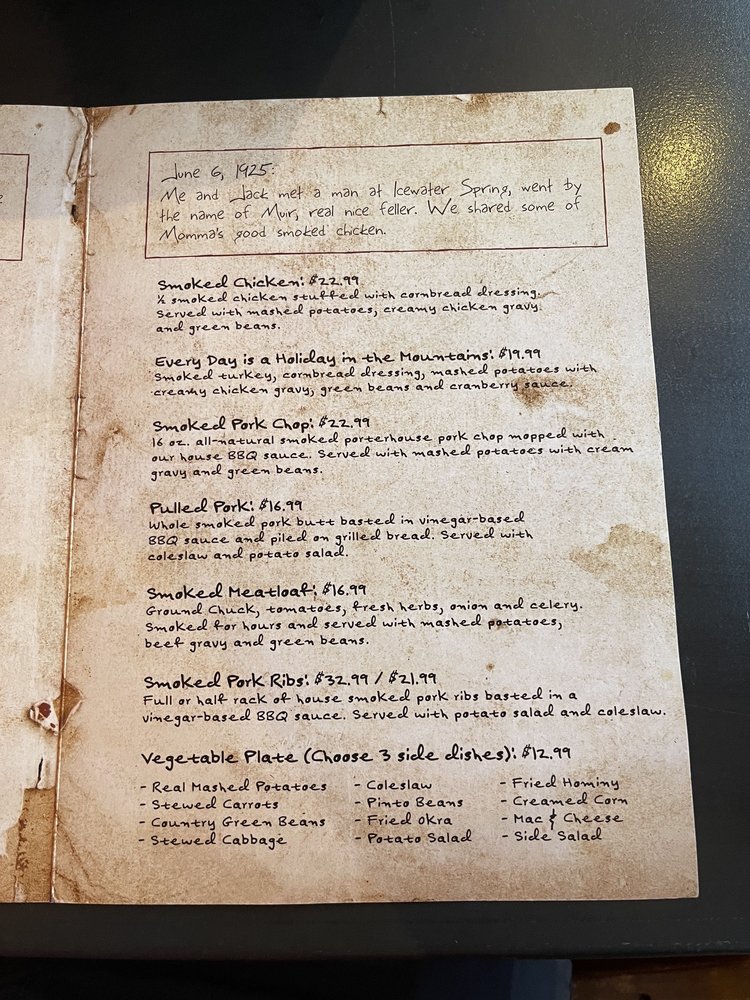 June 6, 1925:
Me and Jack met a man at Icewater Spring, went by
the name of Muir, real nice feller. We shared some of
Momma's good smoked chicken.
Smoked Chicken: $22.99
½ smoked chicken stuffed with cornbread dressing.
Served with mashed potatoes, creamy chicken gravy
and green beans.
Every Day is a Holiday in the Mountains: $19.99
Smoked turkey, cornbread dressing, mashed potatoes with
creamy chicken gravy, green beans and cranberry sauce.
Smoked Pork Chop: $22.99
16 oz. all-natural smoked porterhouse pork chop mopped with
our house BBQ sauce. Served with mashed potatoes with cream
gravy and green beans.
Pulled Pork: $16.99
Whole smoked pork butt basted in vinegar-based
BBQ sauce and piled on grilled bread. Served with
coleslaw and potato salad.
Smoked Meatloaf: $16.99
Ground Chuck, tomatoes, fresh herbs, onion and celery.
Smoked for hours and served with mashed potatoes,
beef gravy and green beans.
Smoked Pork Ribs: $32.99 / $21.99
Full or half rack of house smoked pork ribs basted in a
vinegar-based BBQ sauce. Served with potato salad and coleslaw.
Vegetable Plate (Choose 3 side dishes): $12.99
- Real Mashed Potatoes
- Stewed Carrots
- Country Green Beans
- Stewed Cabbage
- Coleslaw
- Pinto Beans
- Fried Okra
- Potato Salad
- Fried Hominy
- Creamed Corn
- Mac & Cheese
- Side Salad